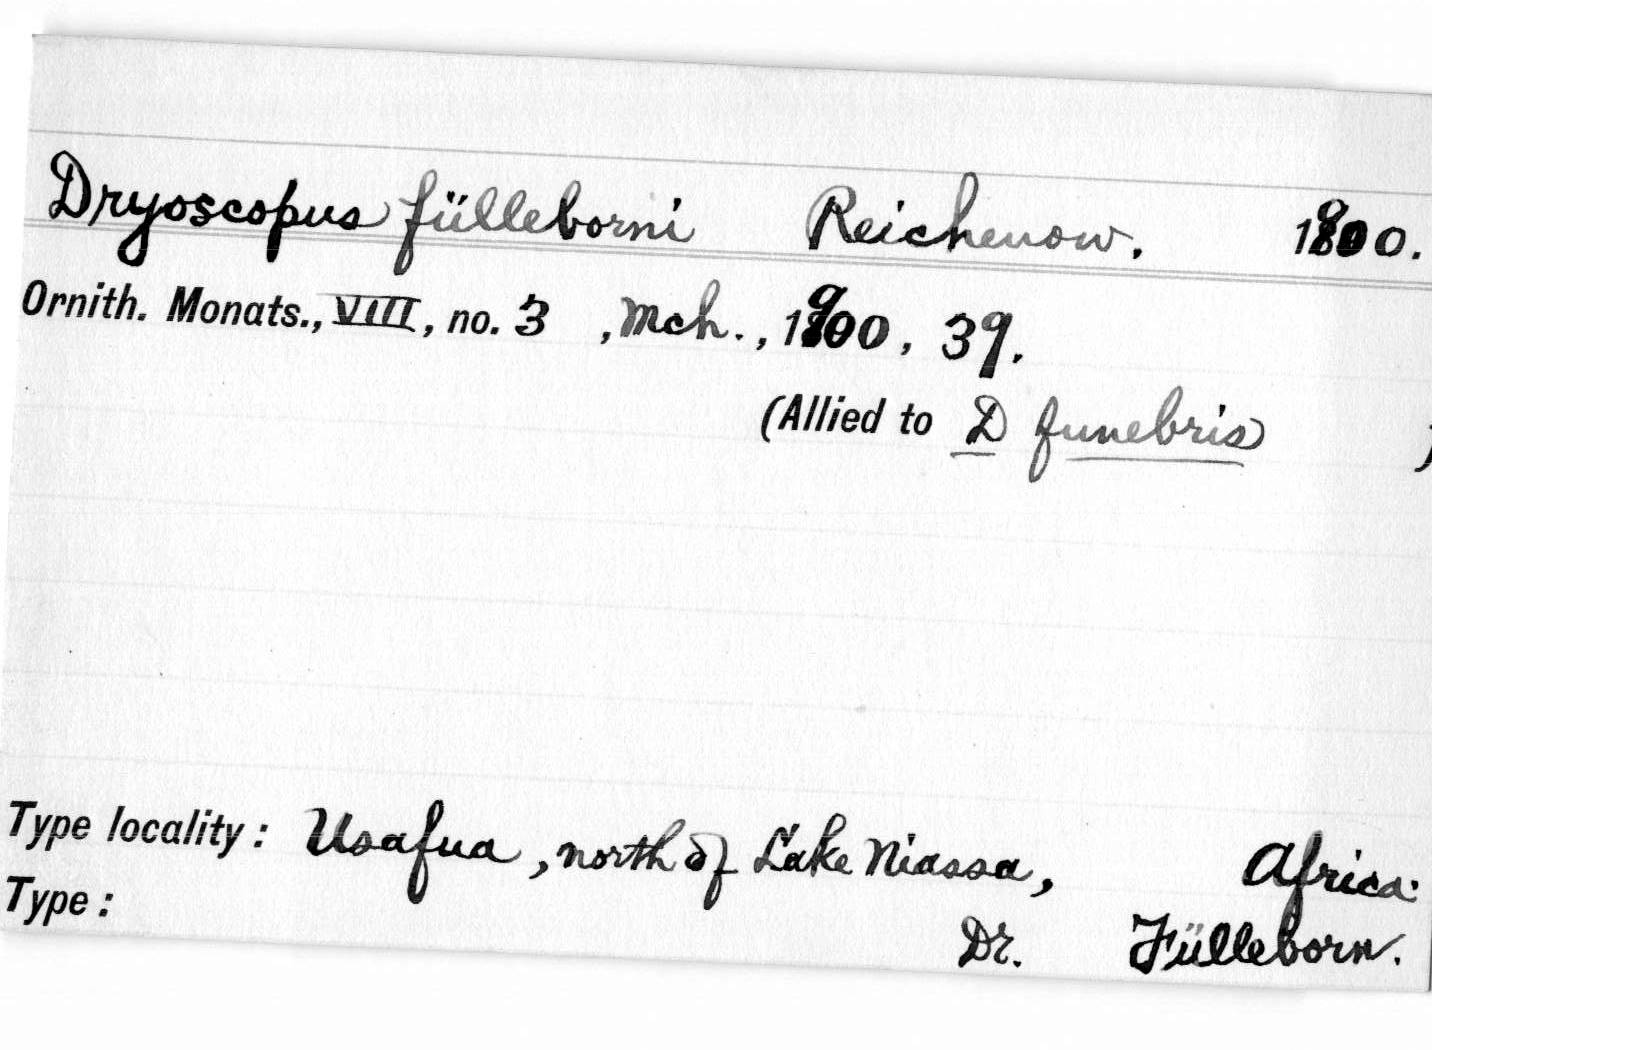 Dryoscopus fülleborni Reichenow. 1900.
Ornith. Monats., VIII, no. 3 , Mch. , 1900 , 39.
(Allied to D funebris )
Type locality : Usafua , north of Lake Niassa , Africa.
Type : Dr. Fülleborn.